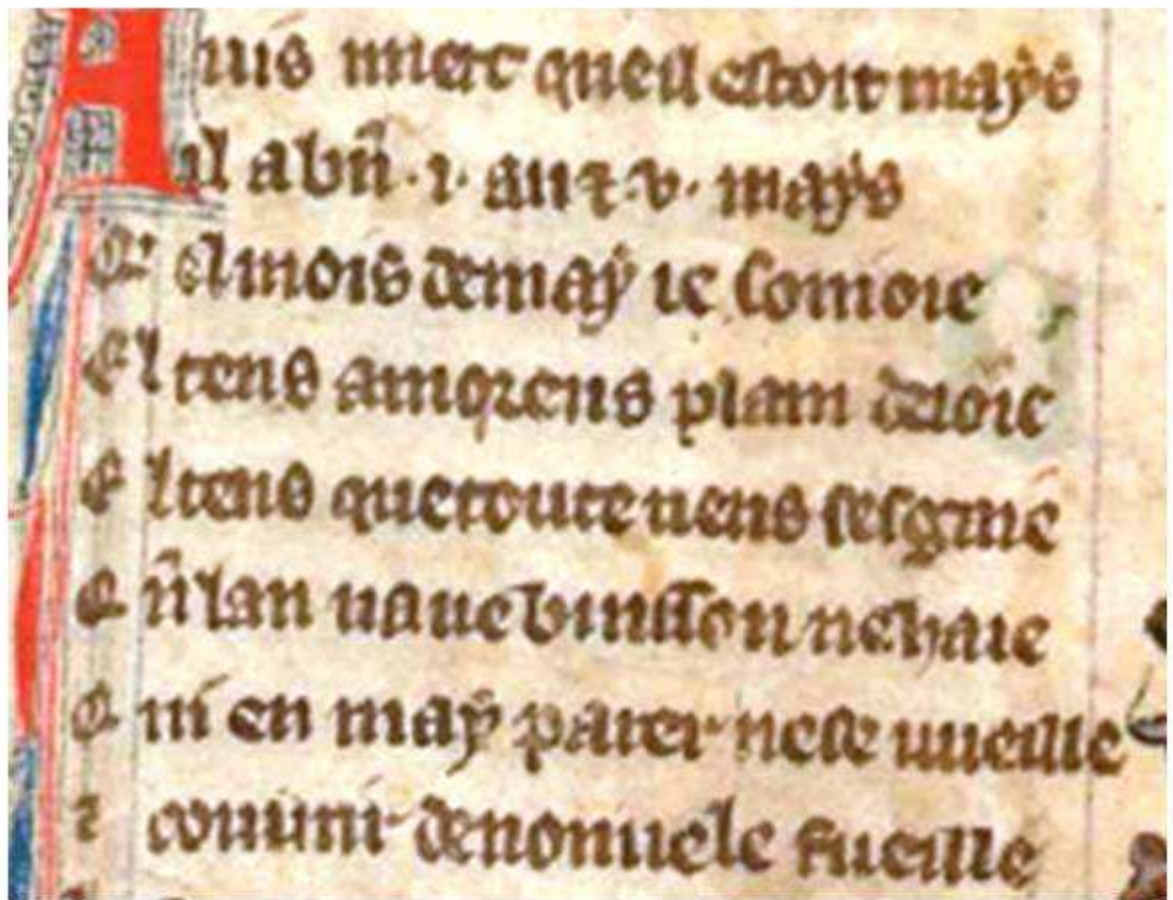 Auis mert queil estoit mays
il a bn̄ .i. an ⁊ .v. mays
Q' El mois de may ie somoie
El tens amorens plain de ioie
El tens que toute riens sesgaie
Q n̄ lan uaue buisson ne haie
Q ui en may parer ne se uueille
⁊ couurir de nouuele fueille